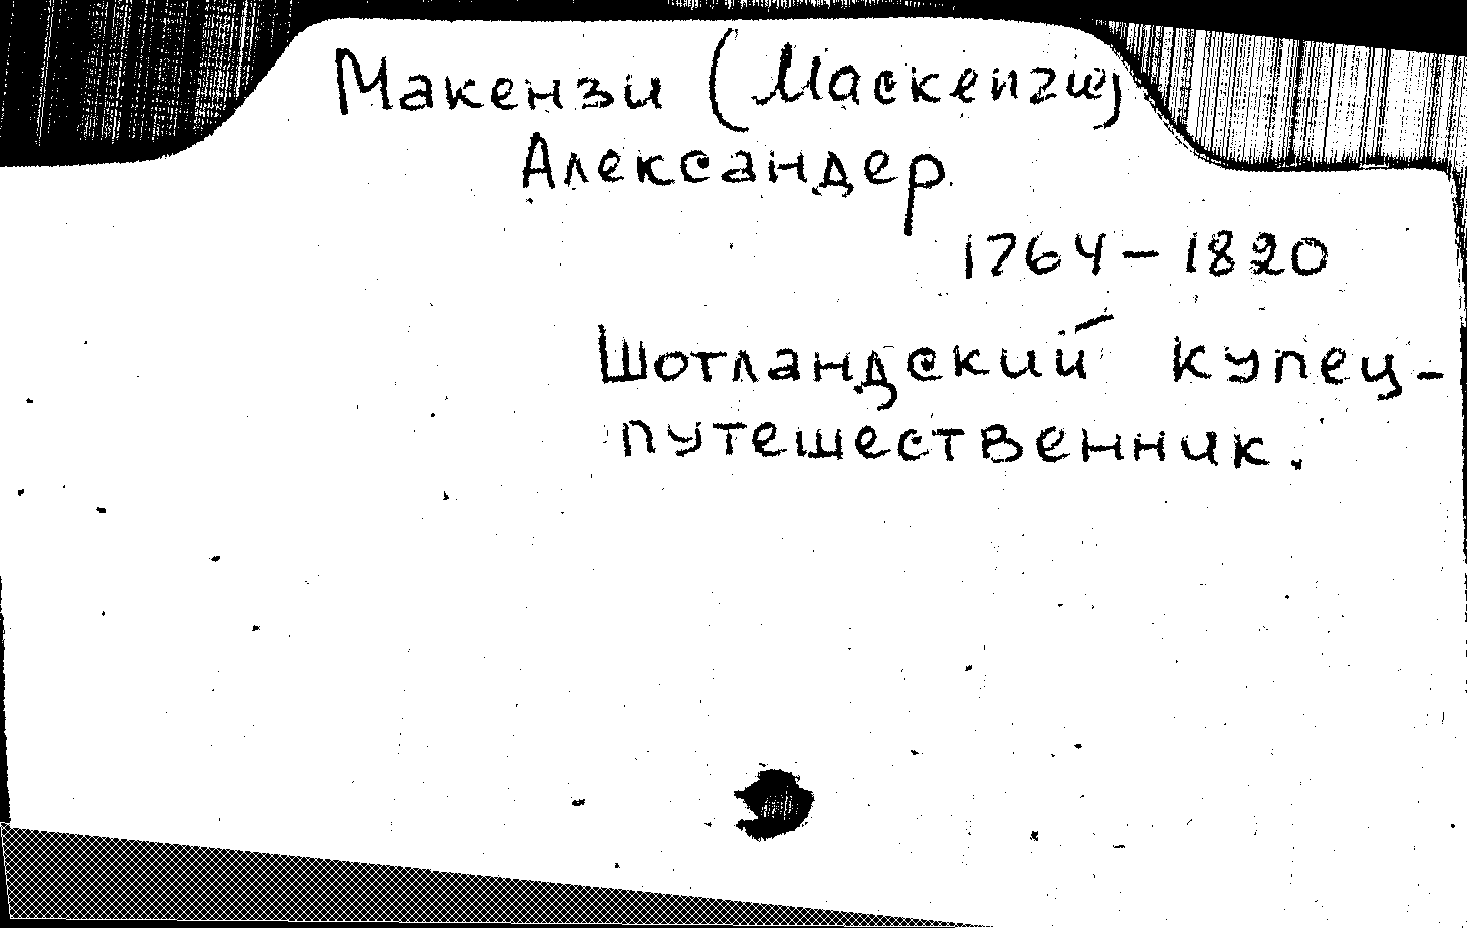 Макензи (Mackenzie)
Александер
1764-1820
Шотландский купец-
путешественник.